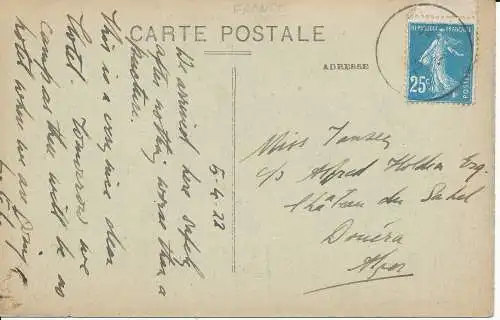 FRANCE
CARTE POSTALE
ADRESSE
REPUBLIQUE FRANCAISE
25c
POSTES
5-4-22
We arrived here safely
after nothing worse than a
puncture.
This is a very nice clean
hotel. Tomorrow we
camp as there will be no
hotel where we are going
Miss Tansey
c/o Alfred Holden Esq.
Château du Sahel
Douéra
Alger